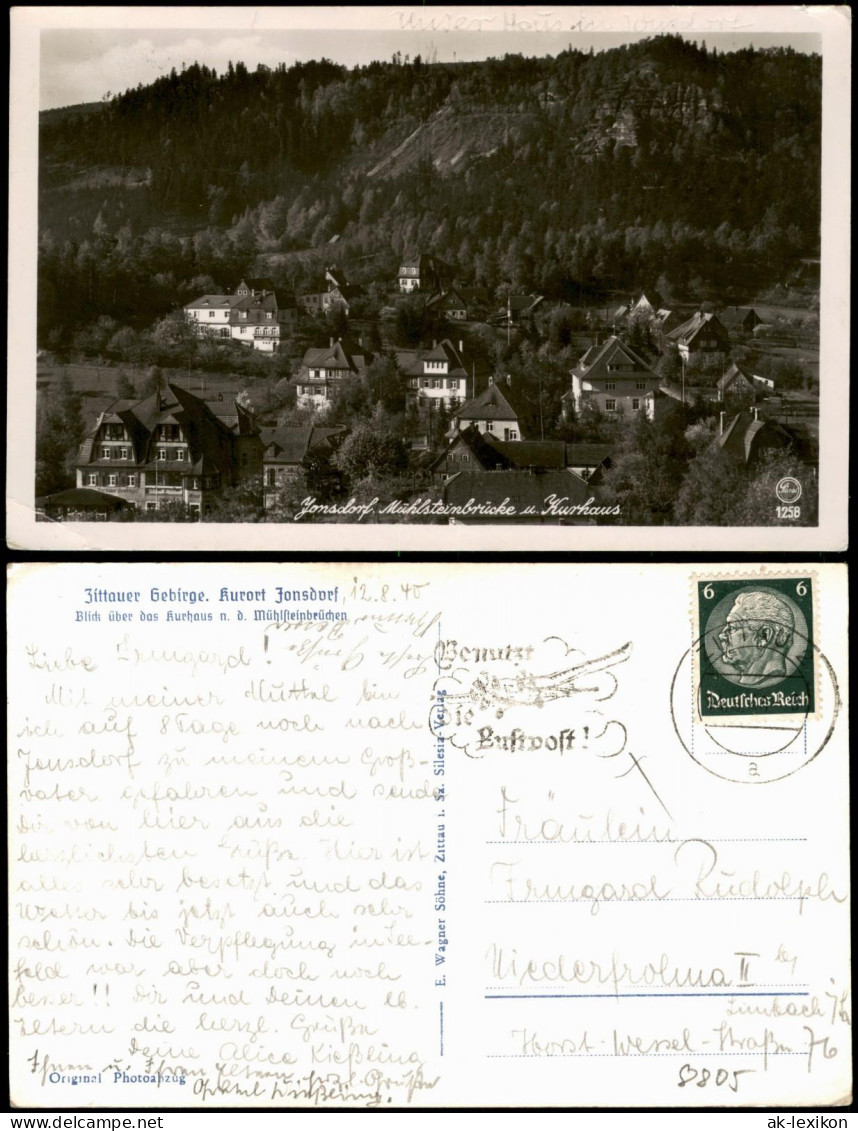 Unser Haus in Jonsdorf
Jonsdorf. Mühlsteinbrüche u. Kurhaus
1258
Zittauer Gebirge. Kurort Jonsdorf
Blick über das Kurhaus n. d. Mühlsteinbrüchen
12.8.40
Liebe Irmgard!
Mit meiner Muttel bin
ich auf 8 Tage noch nach
Jonsdorf zu meinem Groß-
vater gefahren und sende
Dir von hier aus die
herzlichsten Grüße. Hier ist
alles sehr besetzt und das
Wetter bis jetzt auch sehr
schön. Die Verpflegung in See-
feld war aber doch noch
besser!! Dir und Deinen lb.
Eltern die herzl. Grüße
Deine Alice Kießling
Ihnen u. Ihren Eltern herzl. Grüße
Kießling.
Original Photoabzug
E. Wagner Söhne, Zittau i. Sa. Silesia-Verlag
Benutzt
die
Luftpost!
6 6
Deutsches Reich
a
Fräulein
Irmgard Rudolph
Niederfrohna II b/
Limbach i/Sa
Horst-Wessel-Straße 76
8805
ak-lexikon